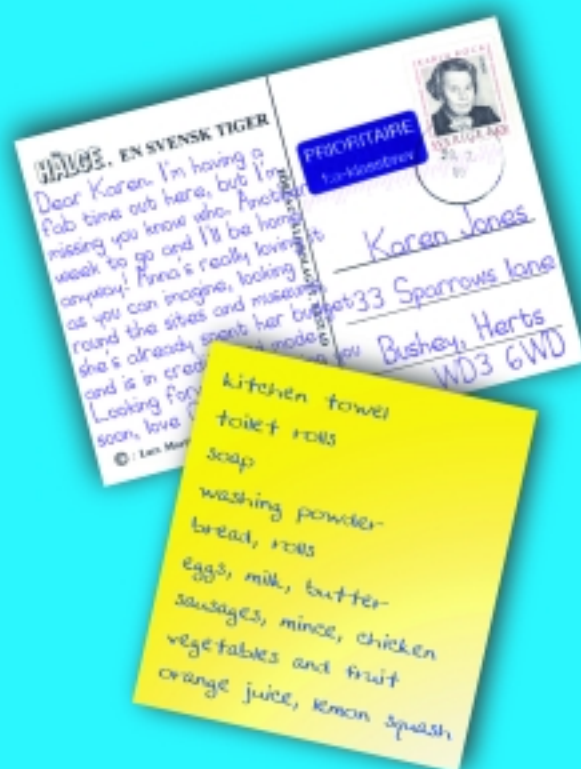 HÄLGE. EN SVENSK TIGER
Dear Karen. I'm having a
fab time out here, but I'm
missing you know who. Another
week to go and I'll be home
anyway! Anna's really loving it
as you can imagine, looking
round the sites and museums
she's already spent her budget
and is in cred
Looking for you
soon, love
PRIORITAIRE
1:a-klassbrev
SVERIGE
Karen Jones
33 Sparrows lane
Bushey, Herts
WD3 6WD
kitchen towel
toilet rolls
soap
washing powder
bread, rolls
eggs, milk, butter
sausages, mince, chicken
vegetables and fruit
orange juice, lemon squash